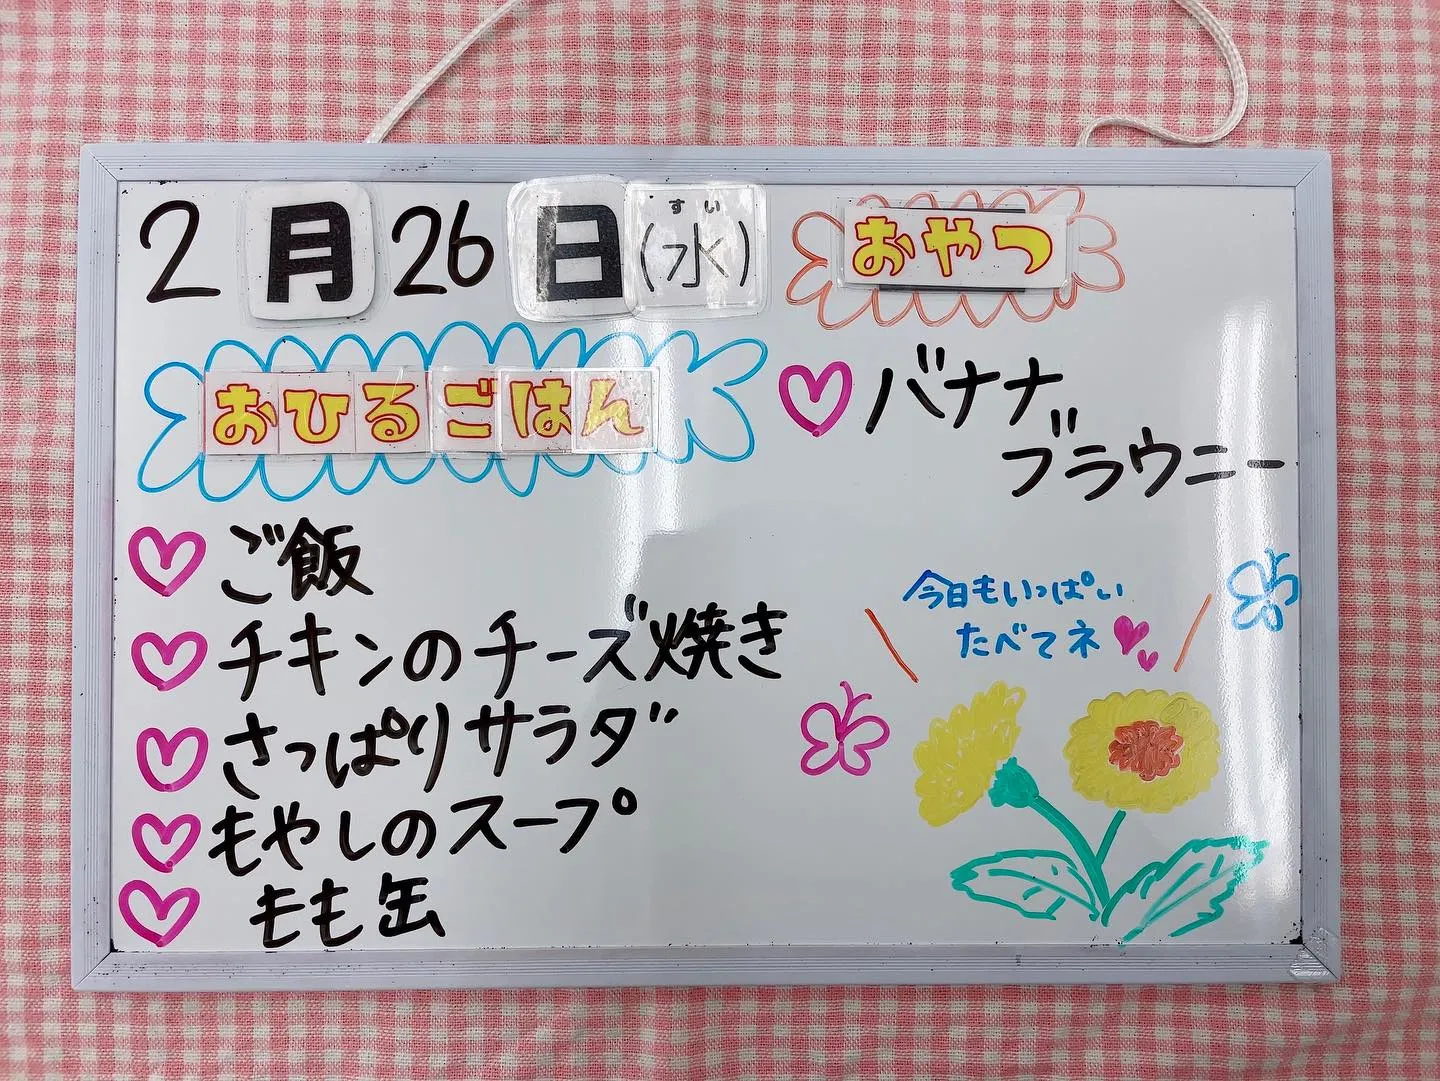 2月26日(水)
すい
おひるごはん
ご飯
チキンのチーズ焼き
さっぱりサラダ
もやしのスープ
もも缶
おやつ
バナナ
ブラウニー
今日もいっぱい
たべてネ